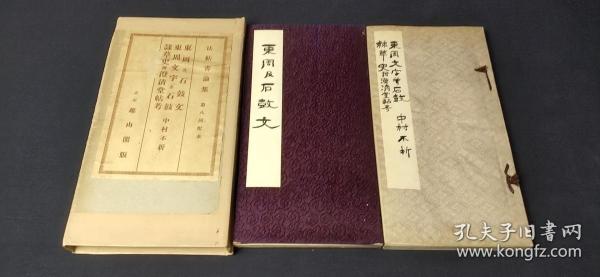 法帖書論集 第八回配本
東周と石鼓文
東周文字と石鼓
隷草史附澄清堂帖考 中村不折
東京 雄山閣版
東周及石鼓文
東周文字ト石鼓
隷草史附澄清堂帖考
中村不折
孔夫子旧书网
www.kongfz.com